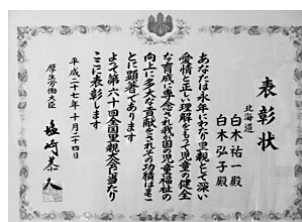 表彰状
北海道
白木祐一殿
白木弘子殿
あなたは永年にわたり里親として深い
愛情と正しい理解をもって児童の健全
な育成に専念され我国の児童福祉の
向上に多大な貢献をされその功績はまこ
とに顕著であります
よって第六十回全国里親大会に当たり
ここに表彰します
平成二十七年十月二十四日
厚生労働大臣
塩崎恭久